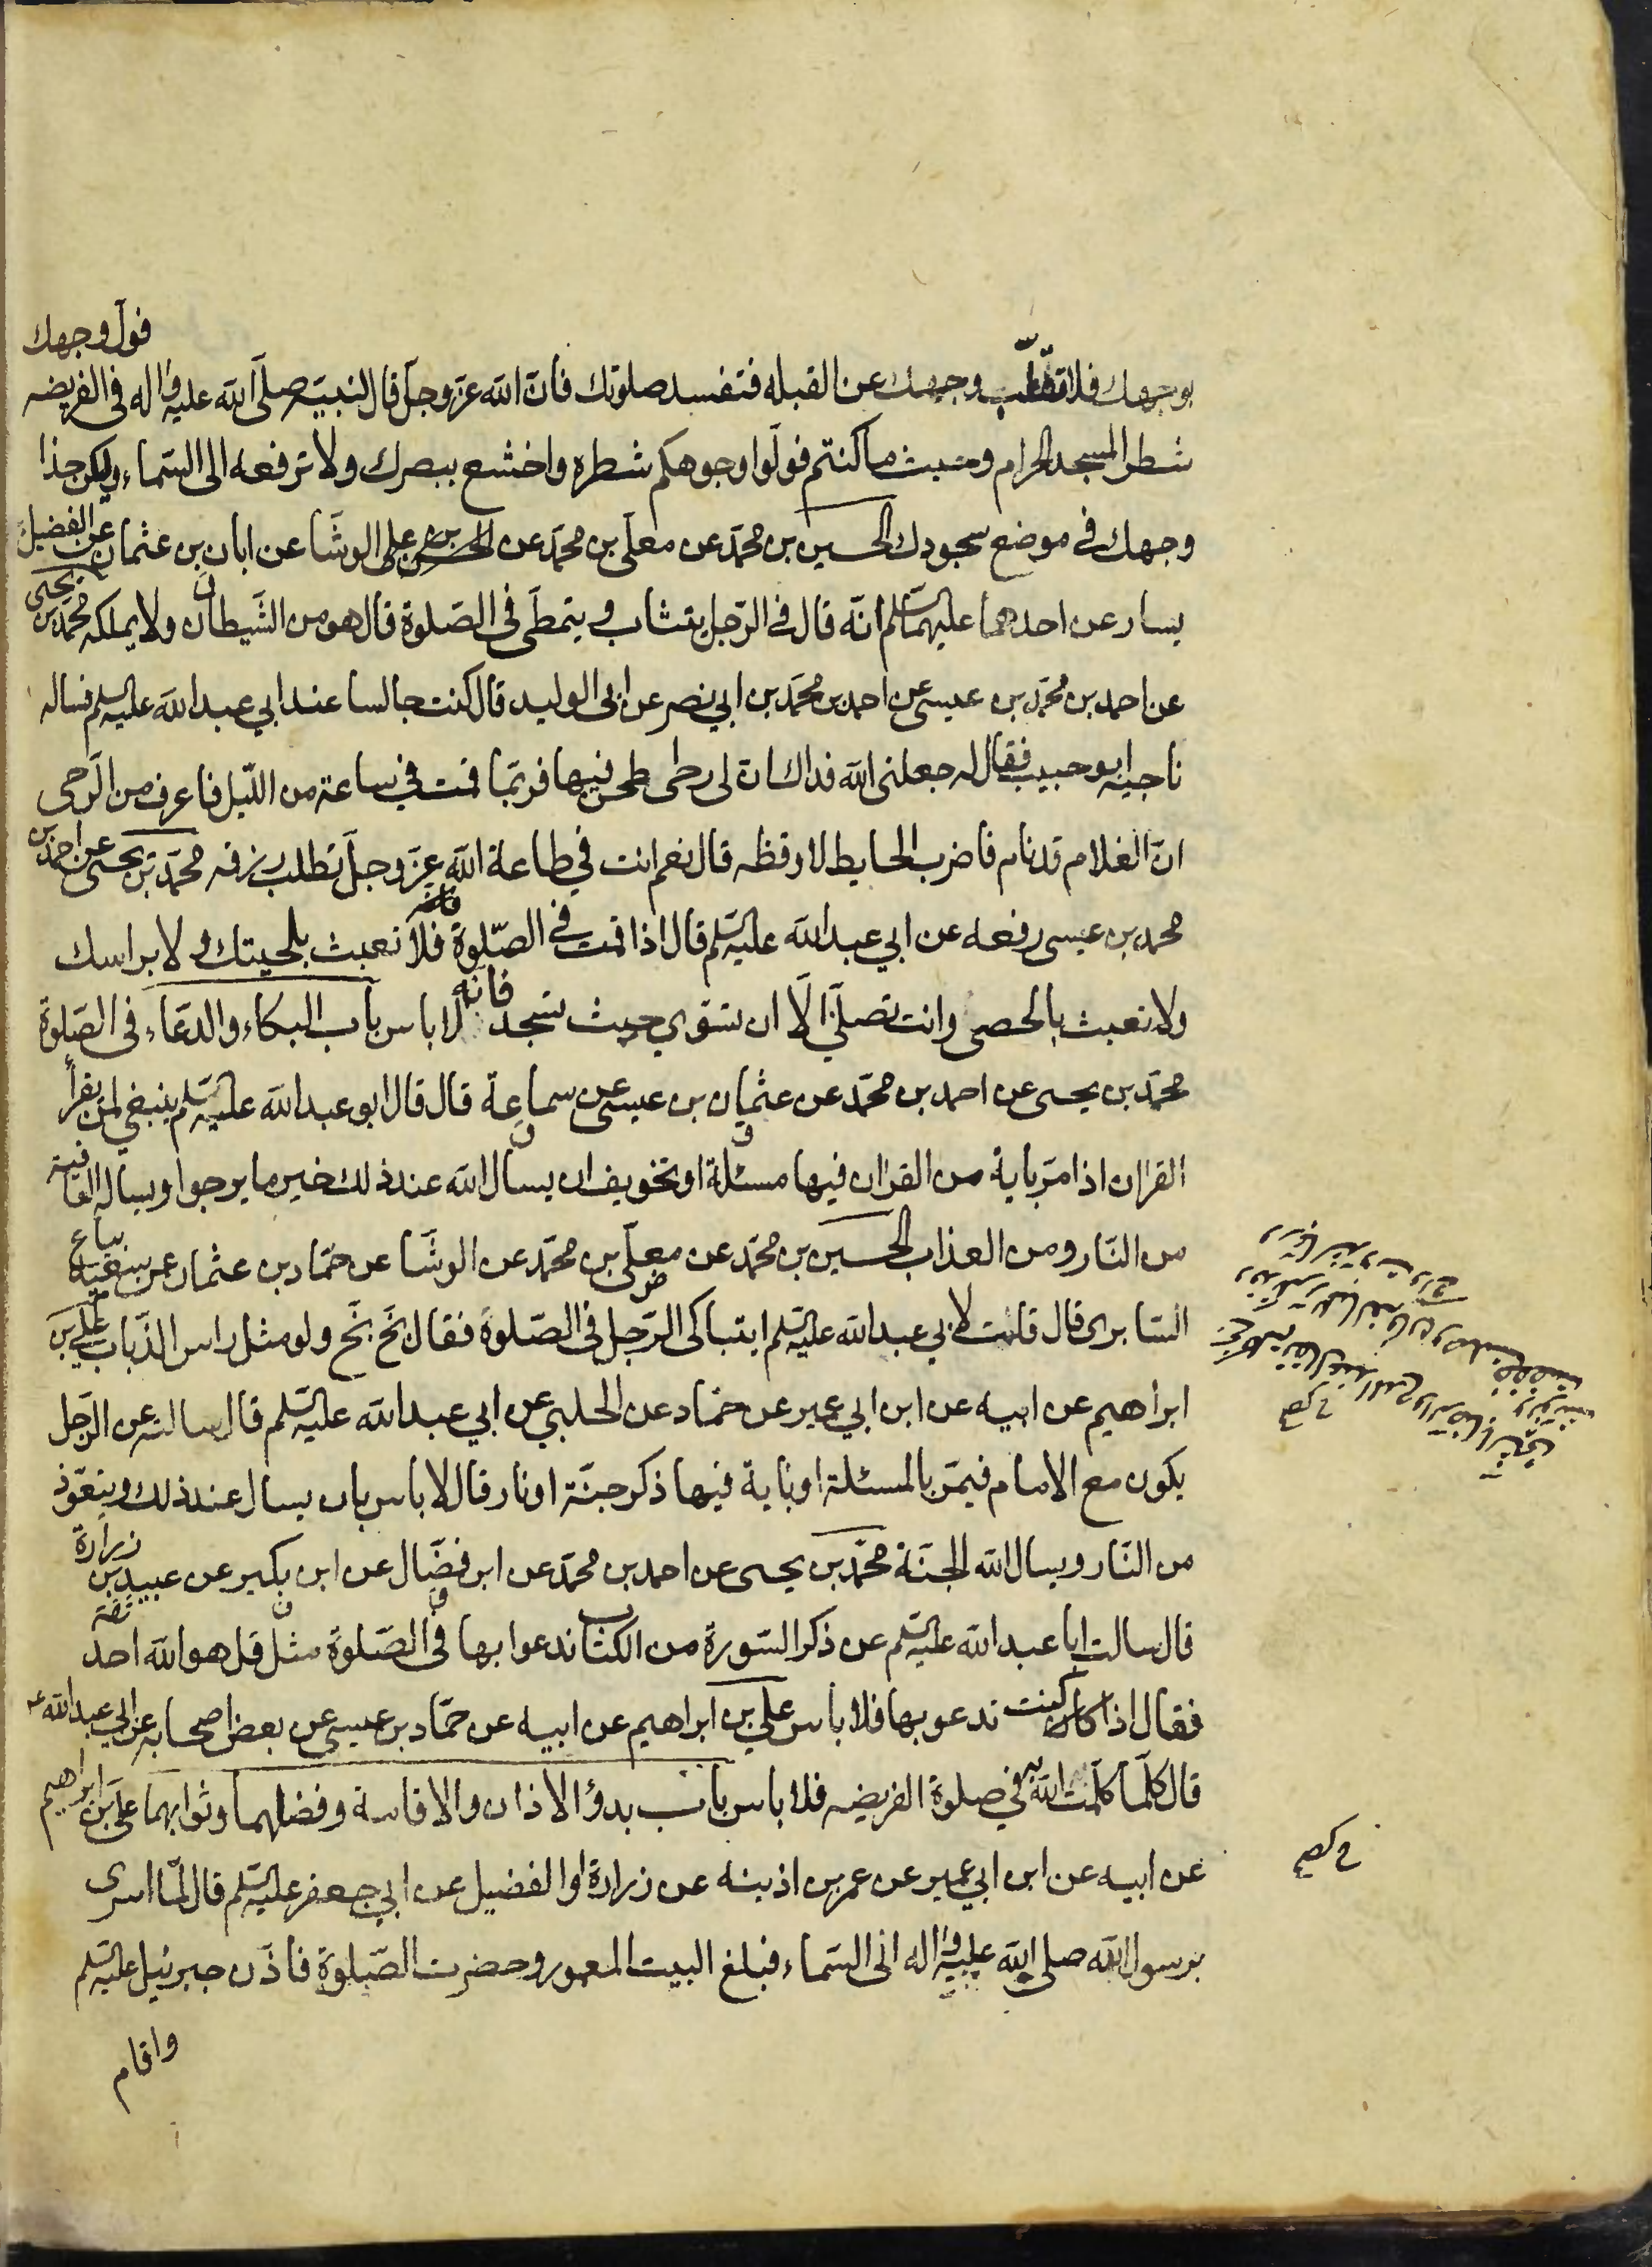 بوجهك فلا تقلب وجهك عن القبله فتفسد صلوتك فان الله عز وجل قال لنبيه صلى الله عليه واله فى الفريضه فول وجهك
شطر المسجد الحرام وحيث ما كنتم فولوا وجوهكم شطره واخشع ببصرك ولا ترفعه الى السماء وليكن حذا
وجهك فى موضع سجودك الحسين بن محمد عن معلى بن محمد عن الحسن بن على الوشا عن ابان بن عثمان عن الفضيل بن
يسار عن احدهما عليهما السلم انه قال فى الرجل يتثاب ويتمطى فى الصلوة قال هو من الشيطان ولا يملكه محمد بن يحيى
عن احمد بن محمد بن عيسى عن احمد بن محمد بن ابي نصر عن ابى الوليد قال كنت جالسا عند ابي عبد الله عليه السلم فساله
ناجيه ابو حبيب فقال له جعلنى الله فداك ان لى رحى طحن فيها فربما قمت فى ساعة من الليل فاعرف من الرحى
ان الغلام قد نام فاضرب الحايط لاوقظه قال نعم انت في طاعة الله عز وجل تطلب رزقه محمد بن يحيى عن احمد بن
محمد بن عيسى رفعه عن ابي عبد الله عليه السلم قال اذا قمت فى الصلوة فلا تعبث بلحيتك ولا براسك
ولا تعبث بالحصى وانت تصلى الا ان تسوي حيث تسجد فانه لا باس باب البكاء والدعاء فى الصلوة
محمد بن يحيى عن احمد بن محمد عن عثمان بن عيسى عن سماعة قال قال ابو عبد الله عليه السلم ينبغي لمن يقرأ
القران اذا مر باية من القران فيها مسئلة او تخويف ان يسال الله عند ذلك خير ما يرجوا ويساله العافية
من النار ومن العذاب الحسين بن محمد عن معلى بن محمد عن الوشا عن حماد بن عثمان عن سعيد بياع
السابرى قال قلت لابي عبد الله عليه السلم ايتباكى الرجل فى الصلوة فقال بخ بخ ولو مثل راس الذباب على بن
ابراهيم عن ابيه عن ابن ابي عمير عن حماد عن الحلبي عن ابي عبد الله عليه السلم قال سالته عن الرجل
يكون مع الامام فيمر بالمسئلة او باية فيها ذكر جنة او نار قال لا باس بان يسال عند ذلك ويتعوذ
من النار ويسال الله الجنة محمد بن يحيى عن احمد بن محمد عن ابن فضال عن ابن بكير عن عبيد بن زرارة
قال سالت ابا عبد الله عليه السلم عن ذكر السورة من الكتاب ندعوا بها فى الصلوة مثل قل هو الله احد
فقال اذا كنت تدعو بها فلا باس علي بن ابراهيم عن ابيه عن حماد بن عيسى عن بعض اصحابه عن ابي عبد الله ع
قال كلما كلمت الله به في صلوة الفريضه فلا باس باب بدؤ الاذان والاقامة وفضلهما وثوابهما على بن ابراهيم
عن ابيه عن ابن ابي عمير عن عمر بن اذينه عن زرارة او الفضيل عن ابي جعفر عليه السلم قال لما اسرى
برسول الله صلى الله عليه واله الى السماء فبلغ البيت المعمور وحضرت الصلوة فاذن جبرئيل عليه السلم
واقام